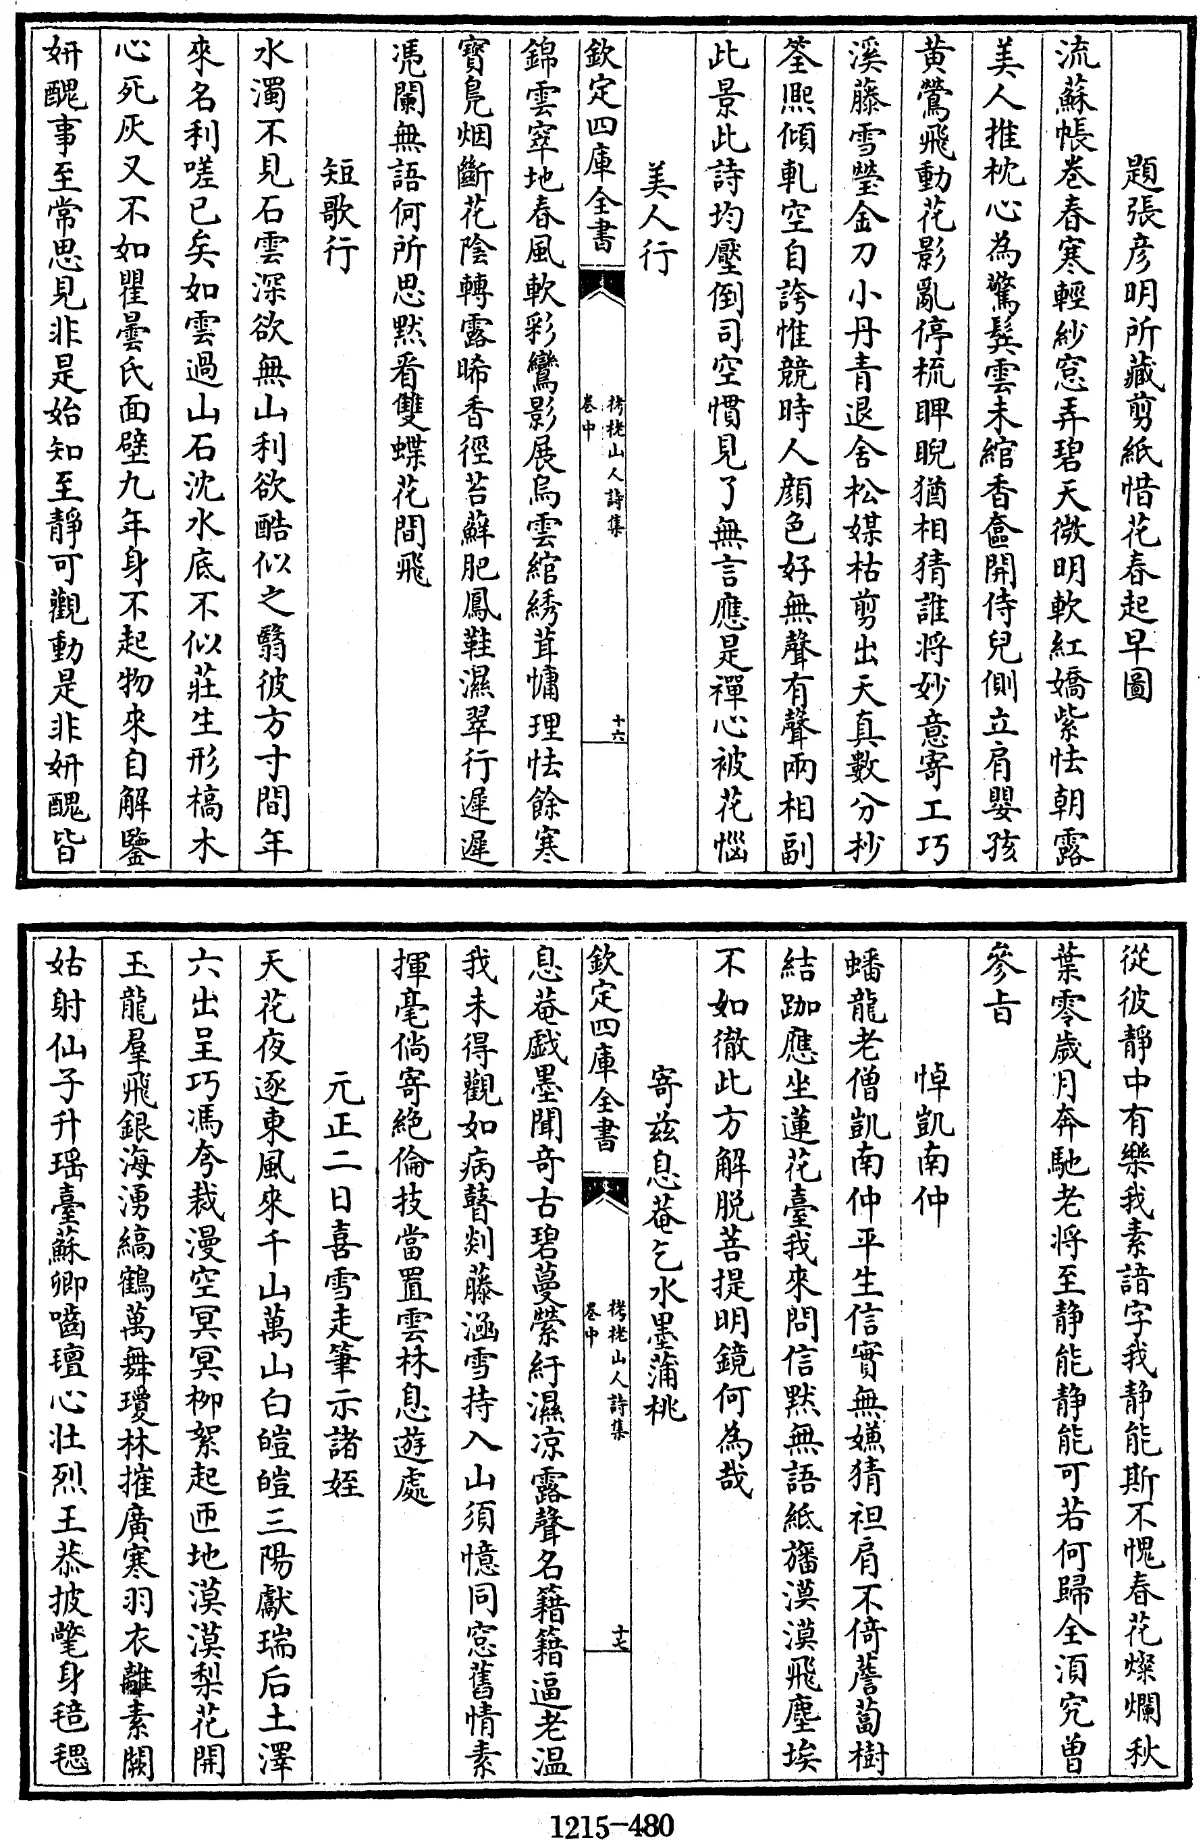 題張彦明所藏剪紙惜花春起早圖
流蘇帳巻春寒輕紗窓弄碧天微明軟紅嬌紫怯朝露
美人推枕心為驚鬂雲未綰香奩開侍兒側立肩嬰孩
黄鶯飛動花影亂停梳睥睨猶相猜誰將妙意寄工巧
溪藤雪瑩金刀小丹青退舍松媒枯剪出天真數分抄
荃熈傾軋空自誇惟競時人顔色好無聲有聲兩相副
此景此詩均壓倒司空慣見了無言應是禪心被花惱
美人行
欽定四庫全書
栲栳山人詩集
巻中
十六
錦雲窣地春風軟彩鸞影展烏雲綰綉茸慵理怯餘寒
寳鳬烟斷花陰轉露晞香徑苔蘚肥鳳鞋濕翠行遲遲
凭闌無語何所思黙看雙蝶花間飛
短歌行
水濁不見石雲深欲無山利欲酷似之翳彼方寸間年
來名利嗟已矣如雲過山石沈水底不似莊生形槁木
心死灰又不如瞿曇氏面壁九年身不起物來自解鑒
妍醜事至常思見非是始知至靜可觀動是非妍醜皆
從彼靜中有樂我素諳字我靜能斯不愧春花燦爛秋
葉零歲月奔馳老將至静能静能可若何歸全須究曽
參㫖
悼凱南仲
蟠龍老僧凱南仲平生信實無嫌猜袒肩不倚薝蔔樹
結跏應坐蓮花臺我來問信黙無語紙旛漠漠飛塵埃
不如徹此方解脱菩提明鏡何為哉
寄兹息菴乞水墨蒲桃
欽定四庫全書
栲栳山人詩集
巻中
十七
息菴戯墨聞奇古碧蔓縈紆濕凉露聲名籍籍逼老温
我未得觀如病瞽剡藤涵雪持入山須憶同窓舊情素
揮毫倘寄絶倫技當置雲林息遊處
元正二日喜雪走筆示諸姪
天花夜逐東風來千山萬山白皚皚三陽獻瑞后土澤
六出呈巧馮夸裁漫空冥冥栁絮起匝地漠漠梨花開
玉龍羣飛銀海湧縞鶴萬舞瓊林摧廣寒羽衣離素闕
姑射仙子升瑶臺蘇卿囓氊心壮烈王恭披氅身毰毸
1215-480